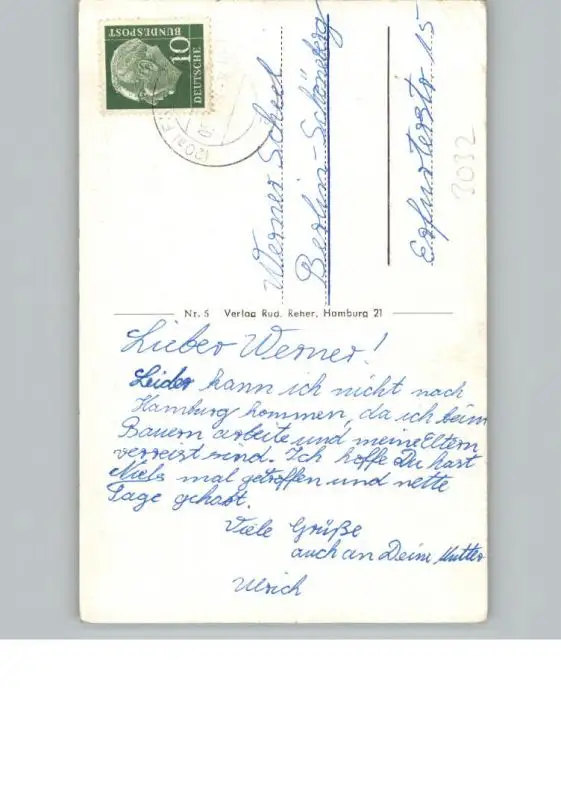 10
DEUTSCHE
BUNDESPOST
Werner Scheel
Berlin-Schöneberg
Erfurterstr 15
3032
Nr. 5 Verlag Rud. Reher, Hamburg 21
Lieber Werner!
Leider kann ich nicht nach
Hamburg kommen, da ich beim
Bauern arbeite und meine Eltern
verreist sind. Ich hoffe Du hast
Niels mal getroffen und nette
Tage gehabt.
Viele Grüße
auch an Deine Mutter
Ulrich